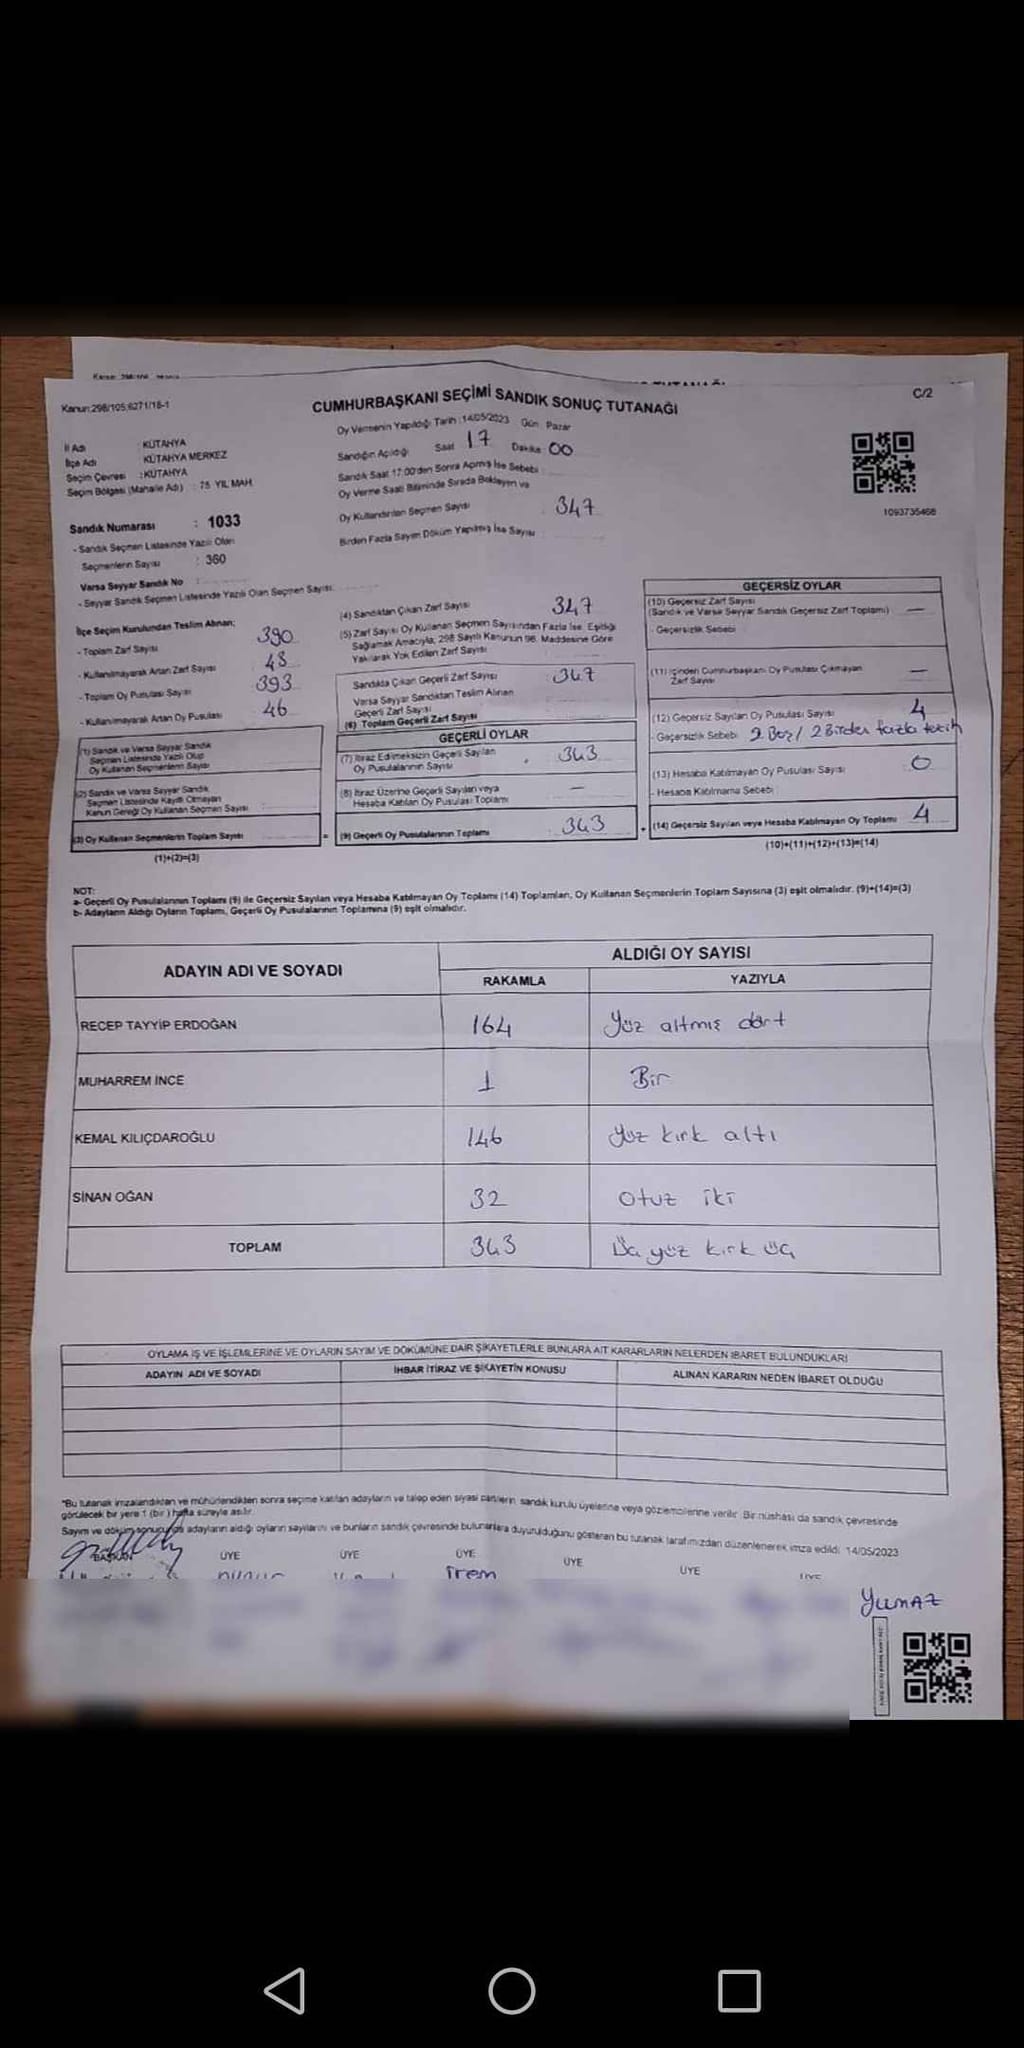 Kanun:298/105;6271/18-1
CUMHURBAŞKANI SEÇİMİ SANDIK SONUÇ TUTANAĞI
C/2
İl Adı : KÜTAHYA
İlçe Adı : KÜTAHYA MERKEZ
Seçim Çevresi : KÜTAHYA
Seçim Bölgesi (Mahalle Adı) : 75 YIL MAH.
Sandık Numarası : 1033
- Sandık Seçmen Listesinde Yazılı Olan
Seçmenlerin Sayısı : 360
Varsa Seyyar Sandık No :
- Seyyar Sandık Seçmen Listesinde Yazılı Olan Seçmen Sayısı:
Oy Vermenin Yapıldığı Tarih : 14/05/2023 Gün: Pazar
Sandığın Açıldığı Saat 17 Dakika 00
Sandık Saat 17:00'den Sonra Açmış İse Sebebi
Oy Verme Saati Bitiminde Sırada Bekleyen ve
Oy Kullandırılan Seçmen Sayısı 347
Birden Fazla Sayım Döküm Yapılmış İse Sayısı
1093735468
İlçe Seçim Kurulundan Teslim Alınan;
- Toplam Zarf Sayısı 390
- Kullanılmayarak Artan Zarf Sayısı 43
- Toplam Oy Pusulası Sayısı 393
- Kullanılmayarak Artan Oy Pusulası 46
(1) Sandık ve Varsa Seyyar Sandık
Seçmen Listesinde Yazılı Olup
Oy Kullanan Seçmenlerin Sayısı
(2) Sandık ve Varsa Seyyar Sandık
Seçmen Listesinde Kayıtlı Olmayan
Kanun Gereği Oy Kullanan Seçmen Sayısı
(3) Oy Kullanan Seçmenlerin Toplam Sayısı
(1)+(2)=(3)
(4) Sandıktan Çıkan Zarf Sayısı 347
(5) Zarf Sayısı Oy Kullanan Seçmen Sayısından Fazla İse, Eşitliği
Sağlamak Amacıyla; 298 Sayılı Kanunun 98. Maddesine Göre
Yakılarak Yok Edilen Zarf Sayısı
Sandıkta Çıkan Geçerli Zarf Sayısı : 347
Varsa Seyyar Sandıktan Teslim Alınan
Geçerli Zarf Sayısı
(6) Toplam Geçerli Zarf Sayısı
GEÇERLİ OYLAR
(7) İtiraz Edilmeksizin Geçerli Sayılan
Oy Pusulalarının Sayısı 343
(8) İtiraz Üzerine Geçerli Sayılan veya
Hesaba Katılan Oy Pusulası Toplamı —
= (9) Geçerli Oy Pusulalarının Toplamı : 343
GEÇERSİZ OYLAR
(10) Geçersiz Zarf Sayısı
(Sandık ve Varsa Seyyar Sandık Geçersiz Zarf Toplamı) —
- Geçersizlik Sebebi
(11) İçinden Cumhurbaşkanı Oy Pusulası Çıkmayan
Zarf Sayısı —
(12) Geçersiz Sayılan Oy Pusulası Sayısı 4
- Geçersizlik Sebebi 2 Boş / 2 Birden fazla tercih
(13) Hesaba Katılmayan Oy Pusulası Sayısı 0
- Hesaba Katılmama Sebebi
+ (14) Geçersiz Sayılan veya Hesaba Katılmayan Oy Toplamı 4
(10)+(11)+(12)+(13)=(14)
NOT:
a- Geçerli Oy Pusulalarının Toplamı (9) ile Geçersiz Sayılan veya Hesaba Katılmayan Oy Toplamı (14) Toplamları, Oy Kullanan Seçmenlerin Toplam Sayısına (3) eşit olmalıdır. (9)+(14)=(3)
b- Adayların Aldığı Oyların Toplamı, Geçerli Oy Pusulalarının Toplamına (9) eşit olmalıdır.
ADAYIN ADI VE SOYADI
ALDIĞI OY SAYISI
RAKAMLA YAZIYLA
RECEP TAYYİP ERDOĞAN 164 Yüz altmış dört
MUHARREM İNCE 1 Bir
KEMAL KILIÇDAROĞLU 146 Yüz kırk altı
SİNAN OĞAN 32 Otuz iki
TOPLAM 343 Üç yüz kırk üç
OYLAMA İŞ VE İŞLEMLERİNE VE OYLARIN SAYIM VE DÖKÜMÜNE DAİR ŞİKAYETLERLE BUNLARA AİT KARARLARIN NELERDEN İBARET BULUNDUKLARI
ADAYIN ADI VE SOYADI İHBAR İTİRAZ VE ŞİKAYETİN KONUSU ALINAN KARARIN NEDEN İBARET OLDUĞU
*Bu tutanak imzalandıktan ve mühürlendikten sonra seçime katılan adayların ve talep eden siyasi partilerin sandık kurulu üyelerine veya gözlemcilerine verilir. Bir nüshası da sandık çevresinde
görülecek bir yere 1 (bir) hafta süreyle asılır.
Sayım ve döküm sonucunda adayların aldığı oyların sayılarını ve bunların sandık çevresinde bulunanlara duyurulduğunu gösteren bu tutanak tarafımızdan düzenlenerek imza edildi. 14/05/2023
BAŞKAN ÜYE ÜYE ÜYE ÜYE ÜYE ÜYE
İrem
YILMAZ